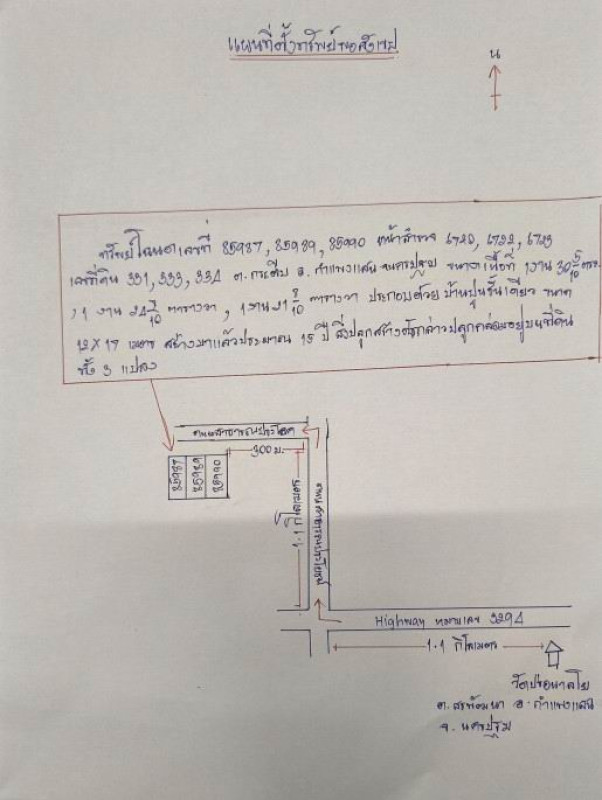 แผนที่ตั้งทรัพย์พอสังเขป
น
ทรัพย์โฉนดเลขที่ 85987, 85989, 85990 หน้าสำรวจ 6720, 6722, 6723
เลขที่ดิน 331, 333, 334 ต.กระตีบ อ.กำแพงแสน จ.นครปฐม ขนาดเนื้อที่ 1 งาน 30 5/10 ตรว.
, 1 งาน 24 7/10 ตารางวา, 1 งาน 21 8/10 ตารางวา ประกอบด้วย บ้านปูนชั้นเดียว ขนาด
12 X 17 เมตร สร้างมาแล้วประมาณ 15 ปี สิ่งปลูกสร้างดังกล่าวปลูกคล่อมอยู่บนที่ดิน
ทั้ง 3 แปลง
ถนนสาธารณประโยชน์
300 ม.
85987
85989
85990
1.1 กิโลเมตร
ถนนสาธารณประโยชน์
Highway หมายเลข 3294
1.1 กิโลเมตร
ต.สระพัฒนา อ.กำแพงแสน
จ.นครปฐม